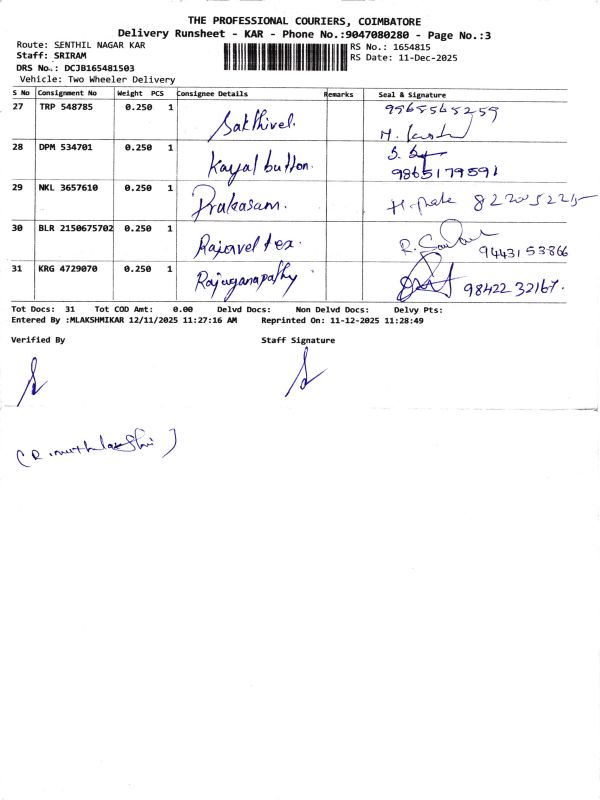 THE PROFESSIONAL COURIERS, COIMBATORE
Delivery Runsheet - KAR - Phone No.:9047080280 - Page No.:3
Route: SENTHIL NAGAR KAR
RS No.: 1654815
Staff: SRIRAM
RS Date: 11-Dec-2025
DRS No.: DCJB165481503
Vehicle: Two Wheeler Delivery
S No Consignment No Weight PCS Consignee Details Remarks Seal & Signature
27 TRP 548785 0.250 1 Sakthivel. 9565565259
28 DPM 534701 0.250 1 Kayal button. 9865179591
29 NKL 3657610 0.250 1 Prakasam.
30 BLR 2150675702 0.250 1 Rajavel tex. 9443153866
31 KRG 4729070 0.250 1 Rajaganapathy 98422 32167.
Tot Docs: 31 Tot COD Amt: 0.00 Delvd Docs: Non Delvd Docs: Delvy Pts:
Entered By :MLAKSHMIKAR 12/11/2025 11:27:16 AM Reprinted On: 11-12-2025 11:28:49
Verified By Staff Signature